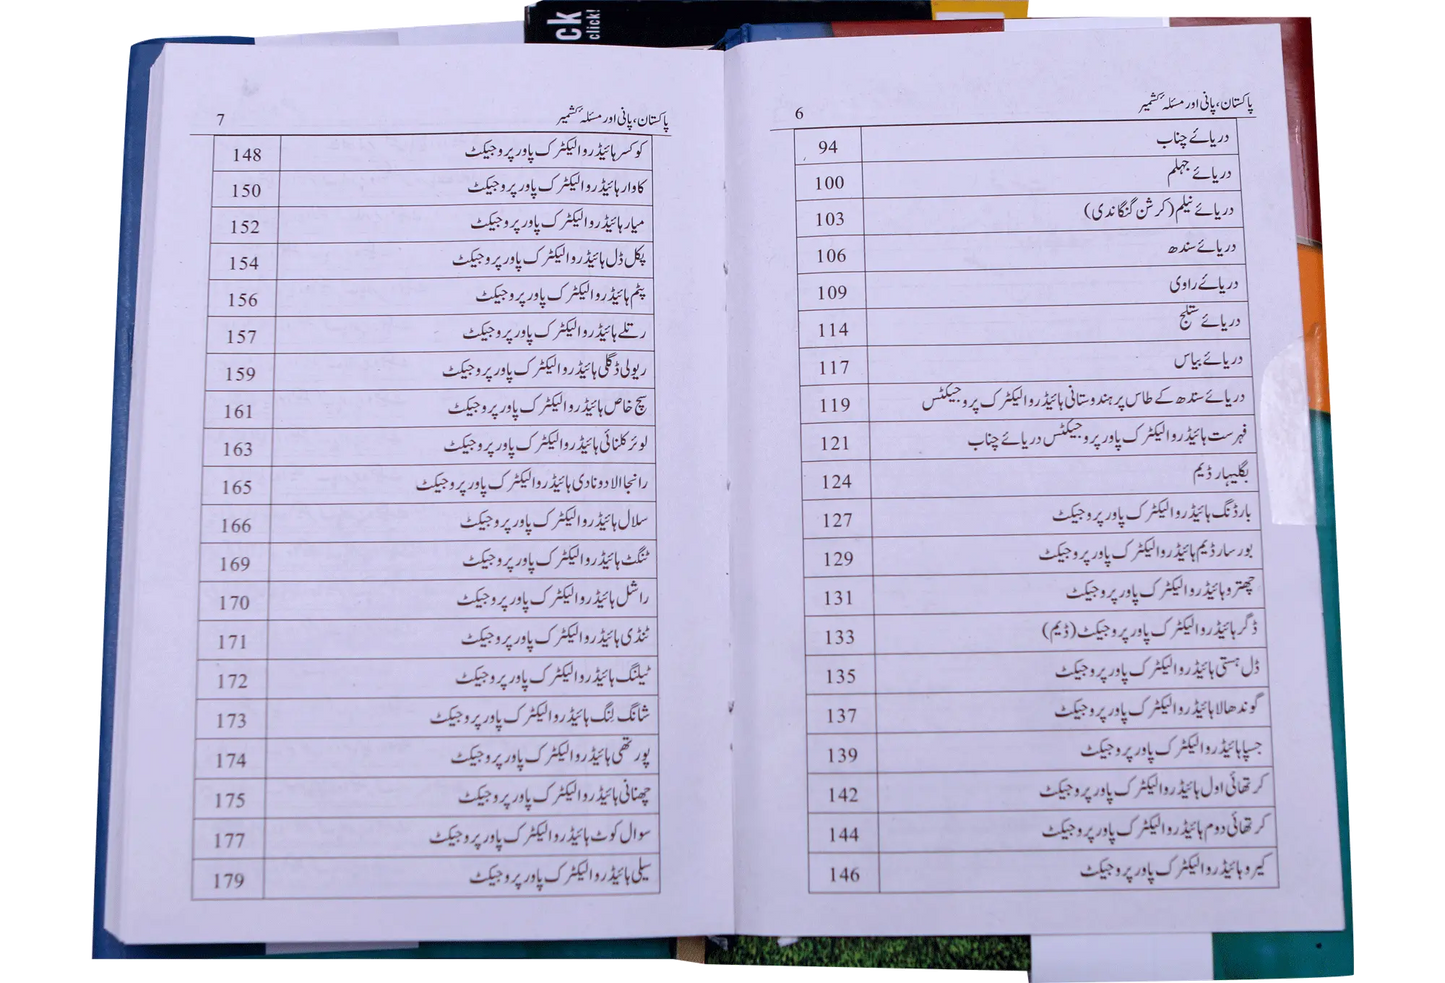 ck
click!
پاکستان، پانی اور مسئلہ کشمیر 6
دریائے چناب 94
دریائے جہلم 100
دریائے نیلم (کرشن گنگا ندی) 103
دریائے سندھ 106
دریائے راوی 109
دریائے ستلج 114
دریائے بیاس 117
دریائے سندھ کے طاس پر ہندوستانی ہائیڈرو الیکٹرک پروجیکٹس 119
فہرست ہائیڈرو الیکٹرک پاور پروجیکٹس دریائے چناب 121
بگلیہار ڈیم 124
بارڈنگ ہائیڈرو الیکٹرک پاور پروجیکٹ 127
بورسار ڈیم ہائیڈرو الیکٹرک پاور پروجیکٹ 129
چھترو ہائیڈرو الیکٹرک پاور پروجیکٹ 131
ڈگر ہائیڈرو الیکٹرک پاور پروجیکٹ (ڈیم) 133
ڈل ہستی ہائیڈرو الیکٹرک پاور پروجیکٹ 135
گوندھالا ہائیڈرو الیکٹرک پاور پروجیکٹ 137
جسپا ہائیڈرو الیکٹرک پاور پروجیکٹ 139
کرتھائی اول ہائیڈرو الیکٹرک پاور پروجیکٹ 142
کرتھائی دوم ہائیڈرو الیکٹرک پاور پروجیکٹ 144
کیرو ہائیڈرو الیکٹرک پاور پروجیکٹ 146
پاکستان، پانی اور مسئلہ کشمیر 7
کوکسر ہائیڈرو الیکٹرک پاور پروجیکٹ 148
کاوار ہائیڈرو الیکٹرک پاور پروجیکٹ 150
میار ہائیڈرو الیکٹرک پاور پروجیکٹ 152
پکل ڈل ہائیڈرو الیکٹرک پاور پروجیکٹ 154
پٹم ہائیڈرو الیکٹرک پاور پروجیکٹ 156
رتلے ہائیڈرو الیکٹرک پاور پروجیکٹ 157
ریولی ڈگلی ہائیڈرو الیکٹرک پاور پروجیکٹ 159
سچ خاص ہائیڈرو الیکٹرک پاور پروجیکٹ 161
لوئر کلنائی ہائیڈرو الیکٹرک پاور پروجیکٹ 163
رانجا الادونادی ہائیڈرو الیکٹرک پاور پروجیکٹ 165
سلال ہائیڈرو الیکٹرک پاور پروجیکٹ 166
ٹنگٹ ہائیڈرو الیکٹرک پاور پروجیکٹ 169
راشل ہائیڈرو الیکٹرک پاور پروجیکٹ 170
ٹنڈی ہائیڈرو الیکٹرک پاور پروجیکٹ 171
ٹیلنگ ہائیڈرو الیکٹرک پاور پروجیکٹ 172
شانگ لنگ ہائیڈرو الیکٹرک پاور پروجیکٹ 173
پورتھی ہائیڈرو الیکٹرک پاور پروجیکٹ 174
چھنانی ہائیڈرو الیکٹرک پاور پروجیکٹ 175
سوال کوٹ ہائیڈرو الیکٹرک پاور پروجیکٹ 177
سیلی ہائیڈرو الیکٹرک پاور پروجیکٹ 179